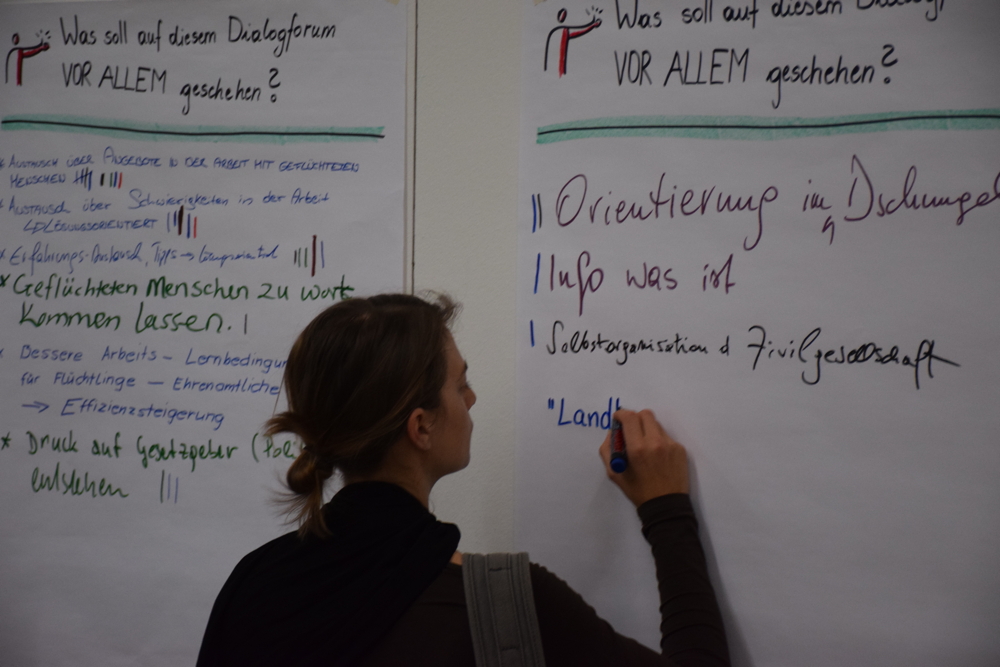 Was soll auf diesem Dialogforum
VOR ALLEM geschehen?
* Austausch über Angebote in der Arbeit mit geflüchteten
Menschen
* Austausch über Schwierigkeiten in der Arbeit
Lösungsorientiert
* Erfahrungs-Austausch, Tipps →
* Geflüchteten Menschen zu wort
kommen lassen.
* Bessere Arbeits- Lernbedingun
für Flüchtlinge — Ehrenamtliche
→ Effizienzsteigerung
* Druck auf Gesetzgeber (Poli
entstehen
Was soll auf diesem Dialogf
VOR ALLEM geschehen?
Orientierung im Dschungel
Info was ist
Selbstorganisation d Zivilgesellschaft
"Land